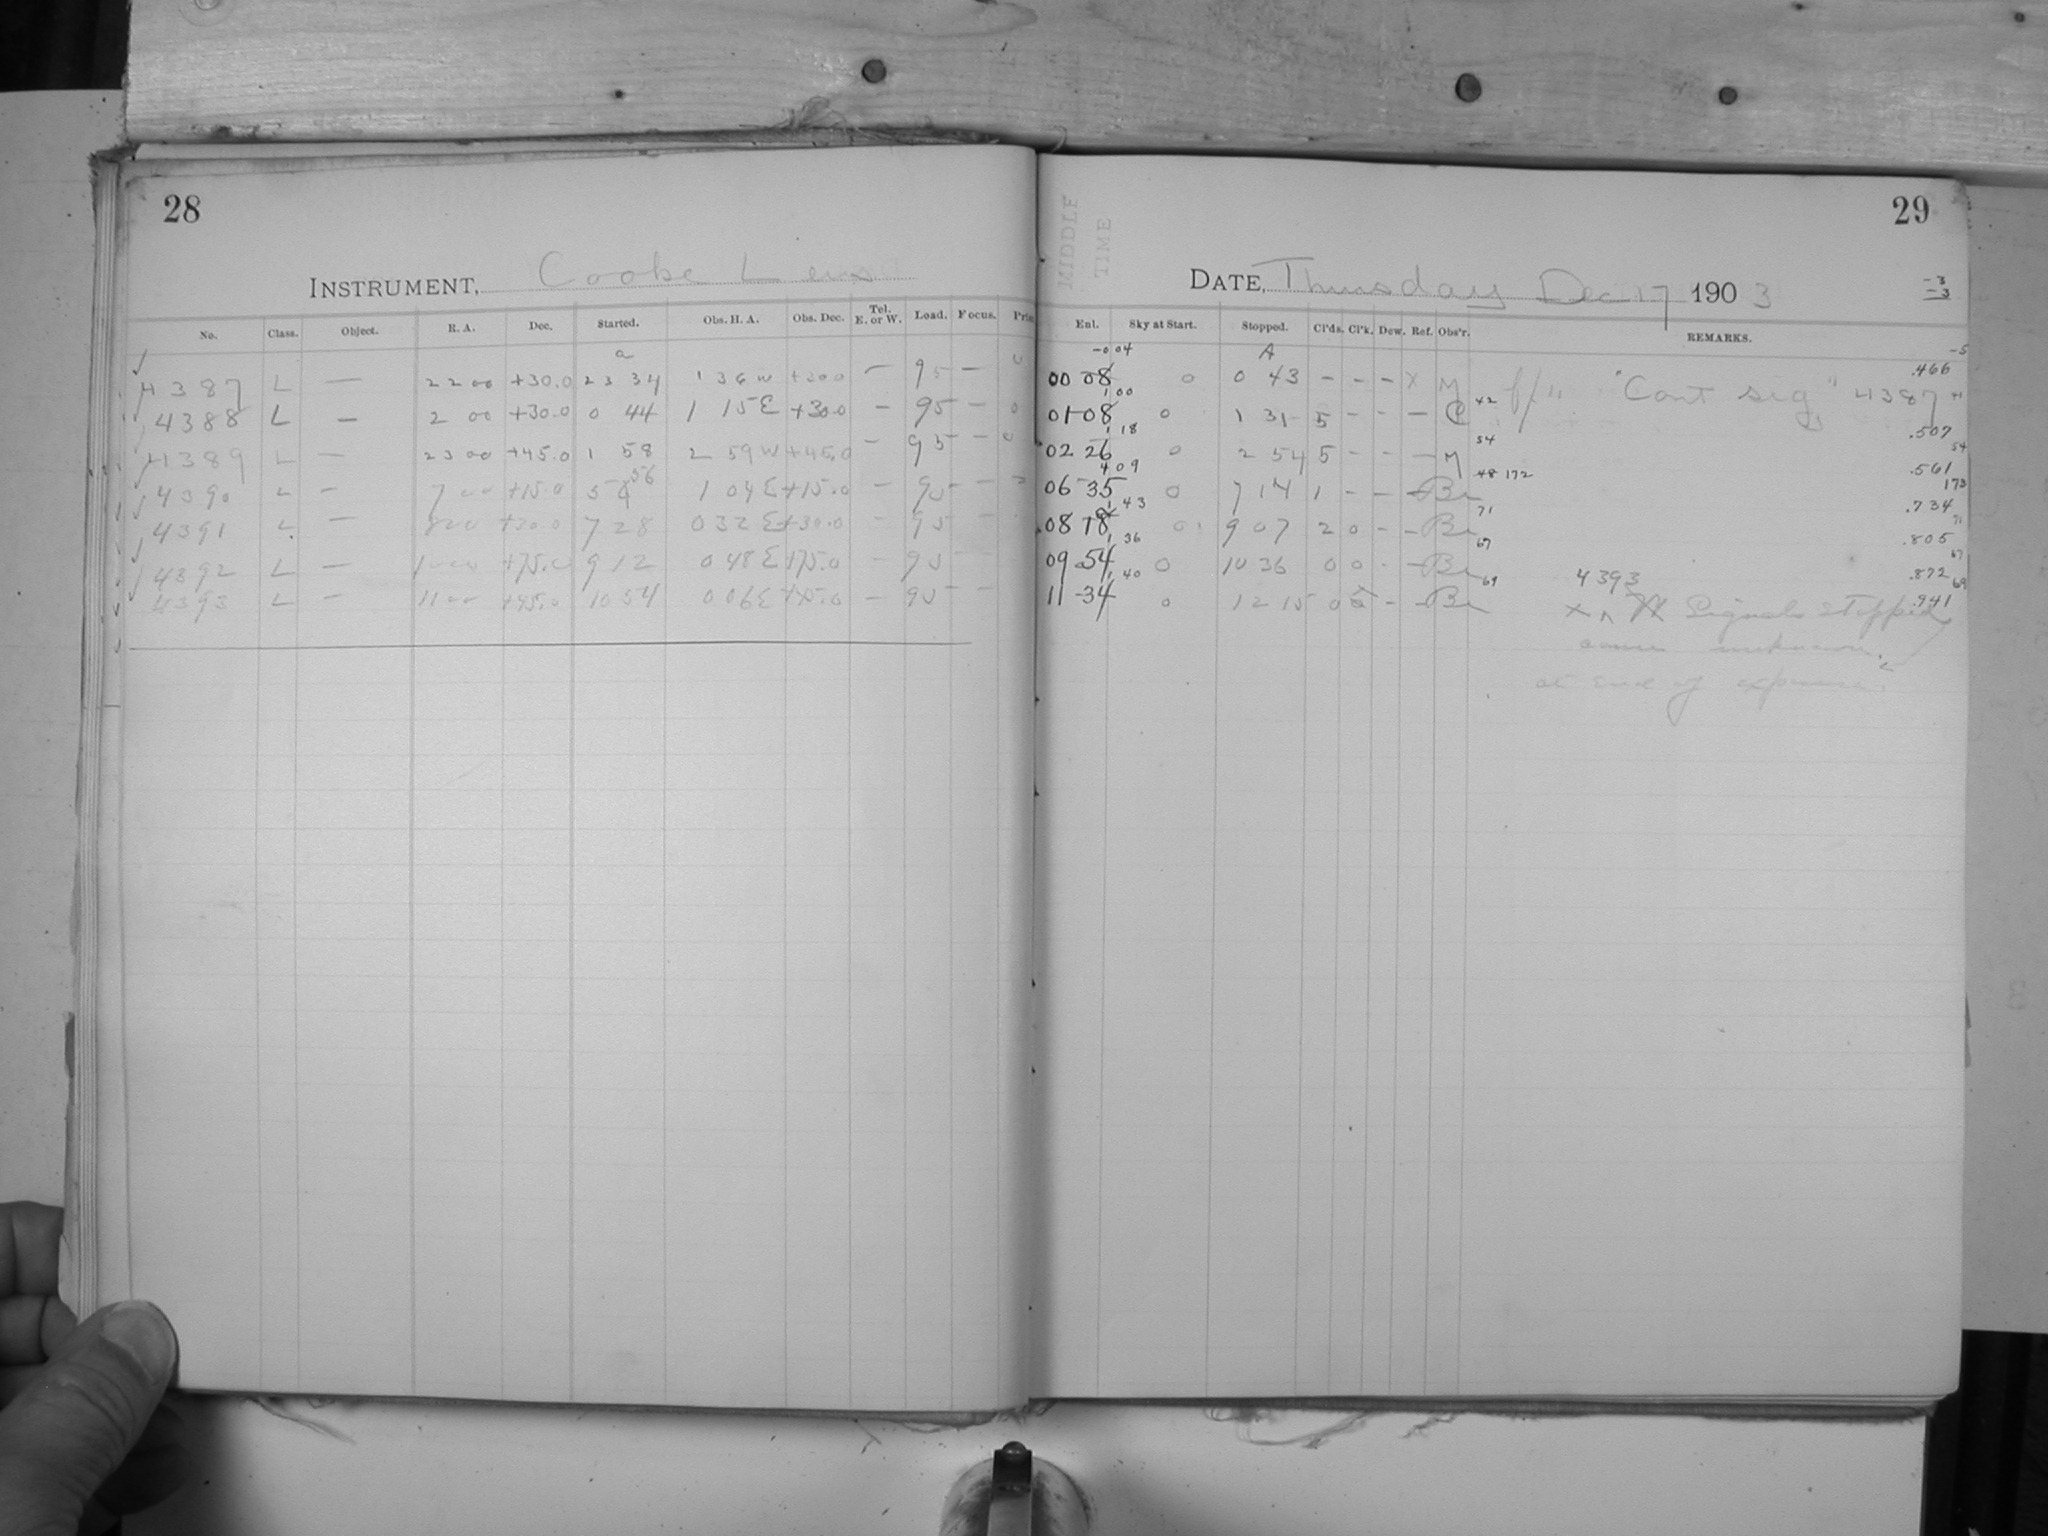 28
INSTRUMENT, Cooke Lens
No. Class. Object. R. A. Dec. Started. Obs. H. A. Obs. Dec. Tel. E. or W. Load. Focus. Pris
a
4387 L — 22 00 +30.0 23 34 1 36 W +30.0 — 95 — 0
4388 L — 2 00 +30.0 0 44 1 15 E +30.0 — 95 — 0
4389 L — 23 00 +45.0 1 58 2 59 W +45.0 — 95 — 0
4390 L — 7 00 +15.0 5 56 1 04 E +15.0 — 95 — 0
4391 L — 8 00 +30.0 7 28 0 32 E +30.0 — 95 —
4392 L — 10 00 +75.0 9 12 0 48 E +75.0 — 95 — —
4393 L — 11 00 +45.0 10 54 0 06 E +45.0 — 95 — —
MIDDLE
TIME
29
DATE, Thursday Dec 17 1903
-3
-3
Enl. Sky at Start. Stopped. Cl'ds. Cl'k. Dew. Ref. Obs'r. REMARKS.
-0 04 A -5
00 08 0 0 43 - - - X M "Cont sig" 4387 .466
1 00 42 41
01-08 0 1 31 5 - - - .507
1 18 54 54
02 26 0 2 54 5 - - - M .561
4 09 48 172 173
06-35 0 7 14 1 - - - Br .734
1 43 71 71
08 18 0 9 07 2 0 - - Br .805
1 36 67 67
09-54 0 10 36 0 0 - - Br 4393 .872
1 40 69 69
11-34 0 12 15 0 - - Br Signals stopped .941
cause unknown.
at end of exposure.